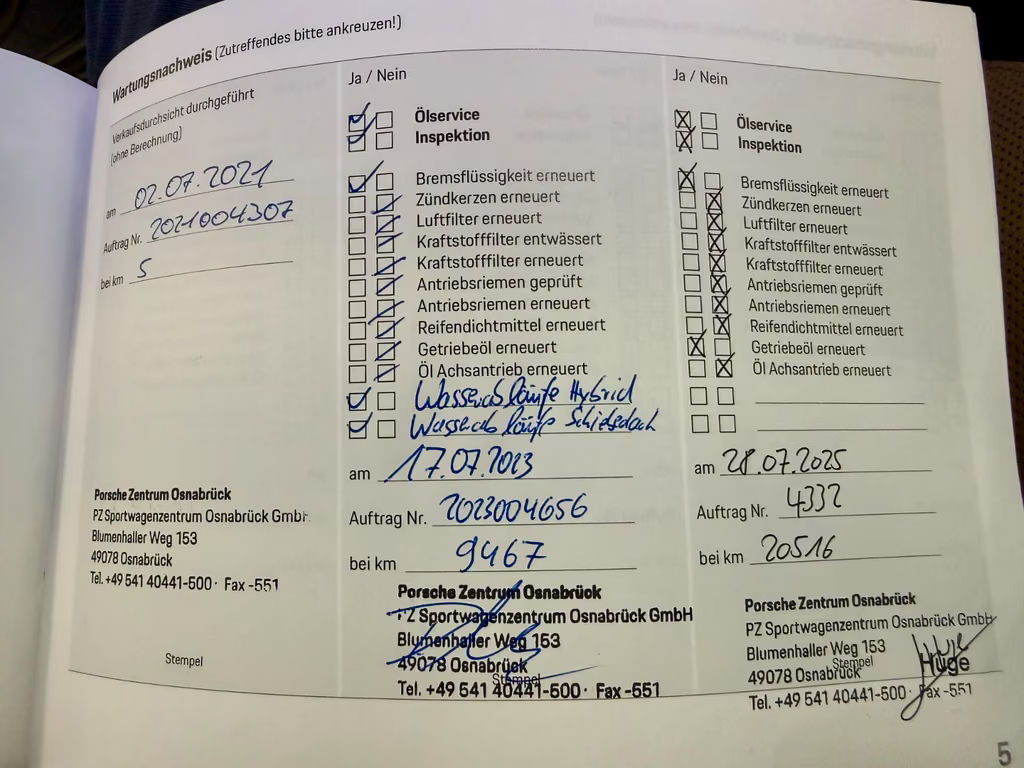 Wartungsnachweis (Zutreffendes bitte ankreuzen!)
Verkaufsdurchsicht durchgeführt
(ohne Berechnung)
am 02.07.2021
Auftrag Nr. 2021004307
bei km 5
Porsche Zentrum Osnabrück
PZ Sportwagenzentrum Osnabrück GmbH
Blumenhaller Weg 153
49078 Osnabrück
Tel. +49 541 40441-500 · Fax -551
Stempel
Ja / Nein
Ölservice
Inspektion
Bremsflüssigkeit erneuert
Zündkerzen erneuert
Luftfilter erneuert
Kraftstofffilter entwässert
Kraftstofffilter erneuert
Antriebsriemen geprüft
Antriebsriemen erneuert
Reifendichtmittel erneuert
Getriebeöl erneuert
Öl Achsantrieb erneuert
Wasserabläufe Hybrid
Wasserabläufe Schiebedach
am 17.07.2023
Auftrag Nr. 2023004656
bei km 9467
Porsche Zentrum Osnabrück
PZ Sportwagenzentrum Osnabrück GmbH
Blumenhaller Weg 153
49078 Osnabrück
Stempel
Tel. +49 541 40441-500 · Fax -551
Ja / Nein
Ölservice
Inspektion
Bremsflüssigkeit erneuert
Zündkerzen erneuert
Luftfilter erneuert
Kraftstofffilter entwässert
Kraftstofffilter erneuert
Antriebsriemen geprüft
Antriebsriemen erneuert
Reifendichtmittel erneuert
Getriebeöl erneuert
Öl Achsantrieb erneuert
am 28.07.2025
Auftrag Nr. 4332
bei km 20516
Porsche Zentrum Osnabrück
PZ Sportwagenzentrum Osnabrück GmbH
Blumenhaller Weg 153
Stempel
49078 Osnabrück Huge
Tel. +49 541 40441-500 · Fax -551
5